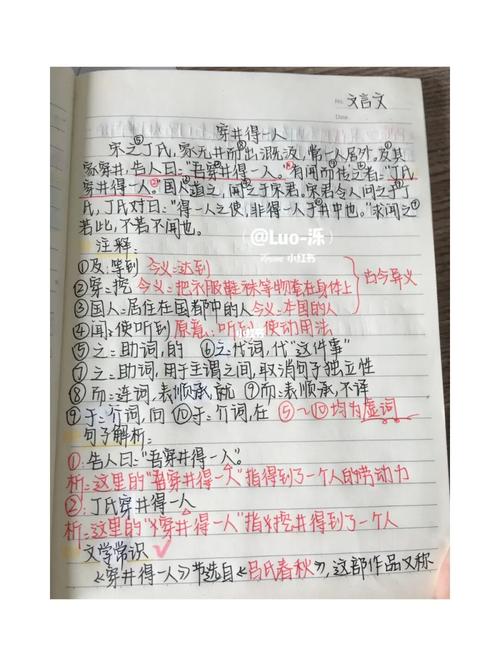 No. 文言文
Date
穿井得一人
宋之丁氏,家无井而出溉汲,常一人居外。及其
家穿井,告人曰:“吾穿井得一人。”有闻而传之者:“丁氏
穿井得一人。”国人道之,闻之于宋君。宋君令人问之于丁
氏,丁氏对曰:“得一人之使,非得一人于井中也。”求闻之
若此,不若不闻也。
@Luo-泺
小红书
注释:
①及:等到 今义:达到
②穿:挖 今义:把衣服鞋袜等物套在身体上 古今异义
③国人:居住在国都中的人 今义:本国的人
④闻:使听到 原意:听到 使动用法
⑤之:助词,的 ⑥之:代词,代“这件事”
⑦之:助词,用于主谓之间,取消句子独立性
⑧而:连词,表顺承,就 ⑨而:表顺承,不译
⑨于:介词,向 ⑩于:介词,在 ⑤~⑩均为虚词
句子解析:
①.告人曰:“吾穿井得一人。”
析:这里的“吾穿井得一人”指得到了一个人的劳动力
②.丁氏穿井得一人
析:这里的“穿井得一人”指挖井得到了一个人
文学常识
《穿井得一人》节选自《吕氏春秋》,这部作品又称